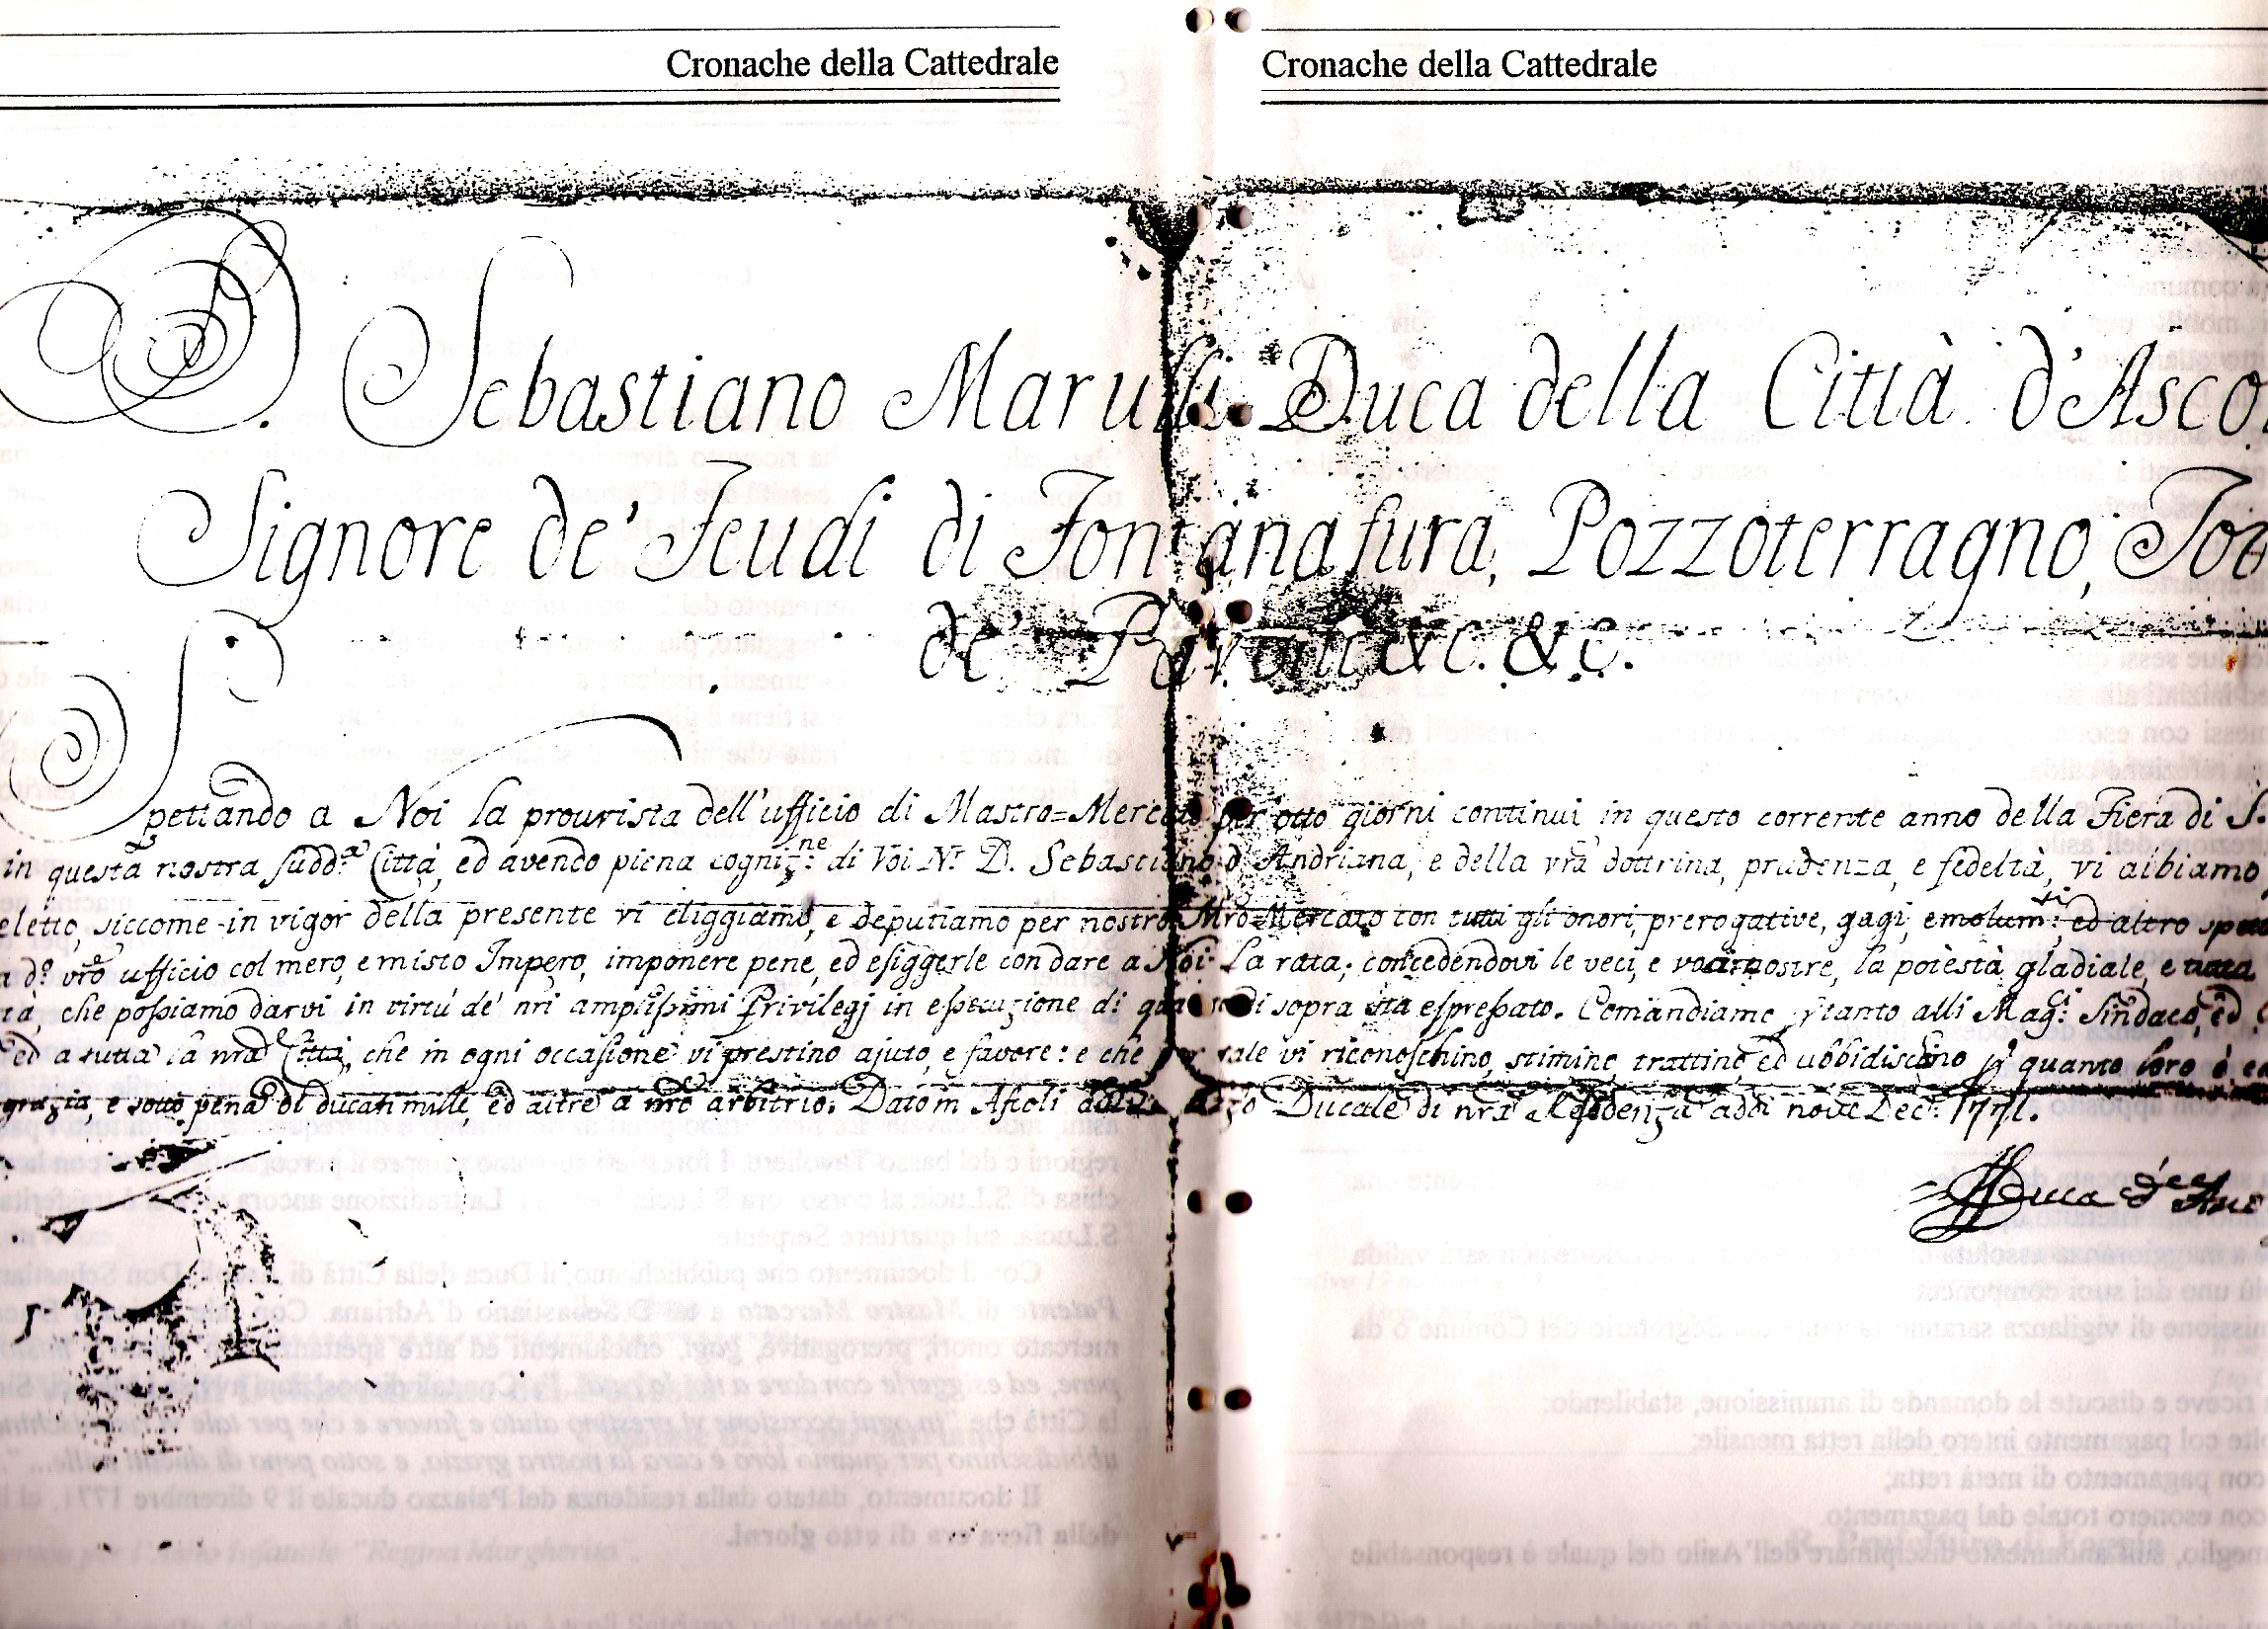 Cronache della Cattedrale
Cronache della Cattedrale
D. Sebastiano Marulli Duca della Città d'Asco
Signore de' Feudi di Fontanafura, Pozzoterragno,
de' &c. &c.
Spettando a Noi la provvista dell'ufficio di Mastro=Mercato per otto giorni continui in questo corrente anno della Fiera di S.
in questa nostra sudd.ª Città, ed avendo piena cogniz.ne di Voi N.r D. Sebastiano d'Andriana, e della vrã dottrina, prudenza, e fedeltà, vi abbiamo
eletto, siccome in vigor della presente vi eliggiamo, e deputiamo per nostro Mrõ=Mercato con tutti gli onori, prerogative, gagi, emolum.ti ed altro
d.º vrõ ufficio col mero, e misto Impero, imponere pene, ed esiggerle con dare a Noi la rata; concedendovi le veci, e voci nostre, la potestà gladiale, e
tà, che possiamo darvi in virtù de' nri amplissimi Privilegj in essecuzione di quanto di sopra sta espressato. Comandiamo ptanto alli Mag.ci Sindaco, ed
ed a tutta la nrã Città, che in ogni occasione vi prestino ajuto, e favore: e che per tale vi riconoschino, stimino, trattino, ed ubbidischino p quanto loro è
grazia, e sotto pena di ducati mille, ed altre a nrõ arbitrio. Dato in Ascoli dal Palazzo Ducale di nrã Residenza addì nove Dec.e 1771.
Duca